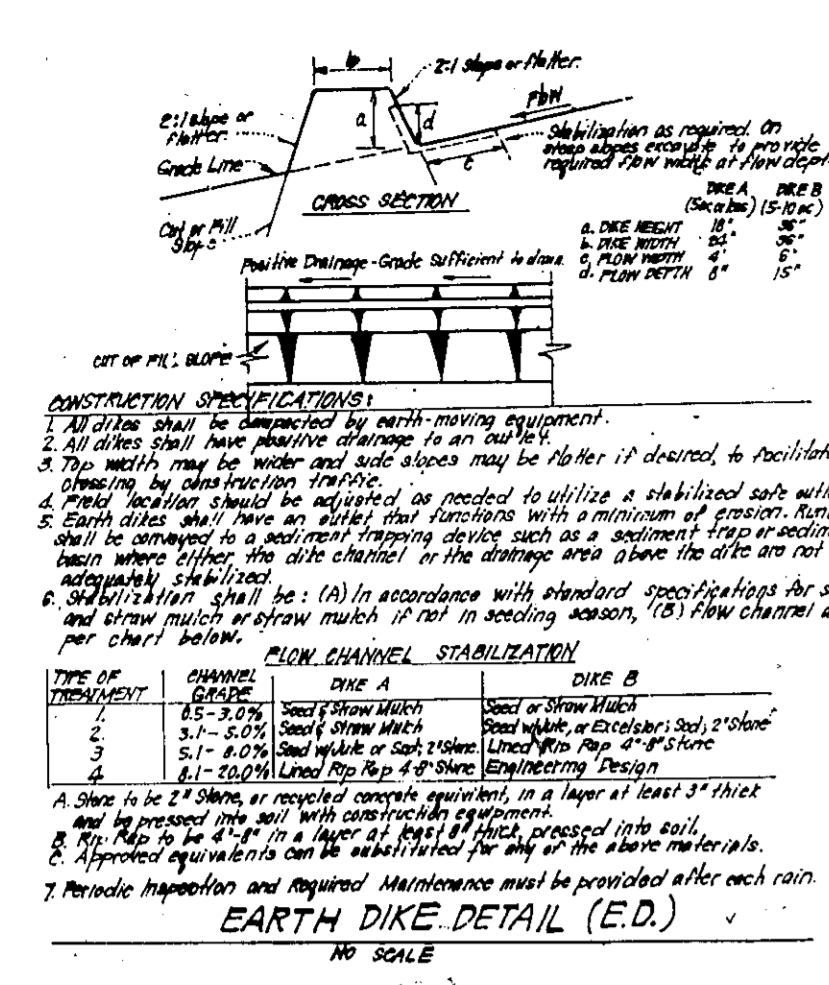 b
2:1 slope or flatter.
FLOW
2:1 slope or
flatter.
a
d
Stabilization as required. On
steep slopes excavate to provide
required flow width at flow depth
Grade Line
c
CROSS SECTION
Cut or Fill
Slope
DIKE A DIKE B
(5ac or less) (5-10 ac)
a. DIKE HEIGHT 18" 36"
b. DIKE WIDTH 24" 36"
c. FLOW WIDTH 4' 6'
d. FLOW DEPTH 8" 15"
Positive Drainage-Grade Sufficient to drain.
CUT OR FILL SLOPE
CONSTRUCTION SPECIFICATIONS:
1. All dikes shall be compacted by earth-moving equipment.
2. All dikes shall have positive drainage to an outlet.
3. Top width may be wider and side slopes may be flatter if desired, to facilitat
crossing by construction traffic.
4. Field location should be adjusted as needed to utilize a stabilized safe outl
5. Earth dikes shall have an outlet that functions with a minimum of erosion. Run
shall be conveyed to a sediment trapping device such as a sediment trap or sedim
basin where either the dike channel or the drainage area above the dike are not
adequately stabilized.
6. Stabilization shall be: (A) In accordance with standard specifications for s
and straw mulch or straw mulch if not in seeding season, (B) flow channel a
per chart below.
FLOW CHANNEL STABILIZATION
TYPE OF TREATMENT CHANNEL GRADE DIKE A DIKE B
1. 0.5-3.0% Seed & Straw Mulch Seed or Straw Mulch
2. 3.1-5.0% Seed & Straw Mulch Seed w/Jute, or Excelsior; Sod; 2" Stone
3 5.1-8.0% Seed w/Jute or Sod; 2" Stone Lined Rip Rap 4"-8" Stone
4 8.1-20.0% Lined Rip Rap 4-8" Stone Engineering Design
A. Stone to be 2" Stone, or recycled concrete equivilent, in a layer at least 3" thick
and be pressed into soil with construction equipment.
B. Rip Rap to be 4"-8" in a layer at least 8" thick, pressed into soil.
C. Approved equivalents can be substituted for any of the above materials.
7. Periodic Inspection and Required Maintenance must be provided after each rain.
EARTH DIKE DETAIL (E.D.)
NO SCALE